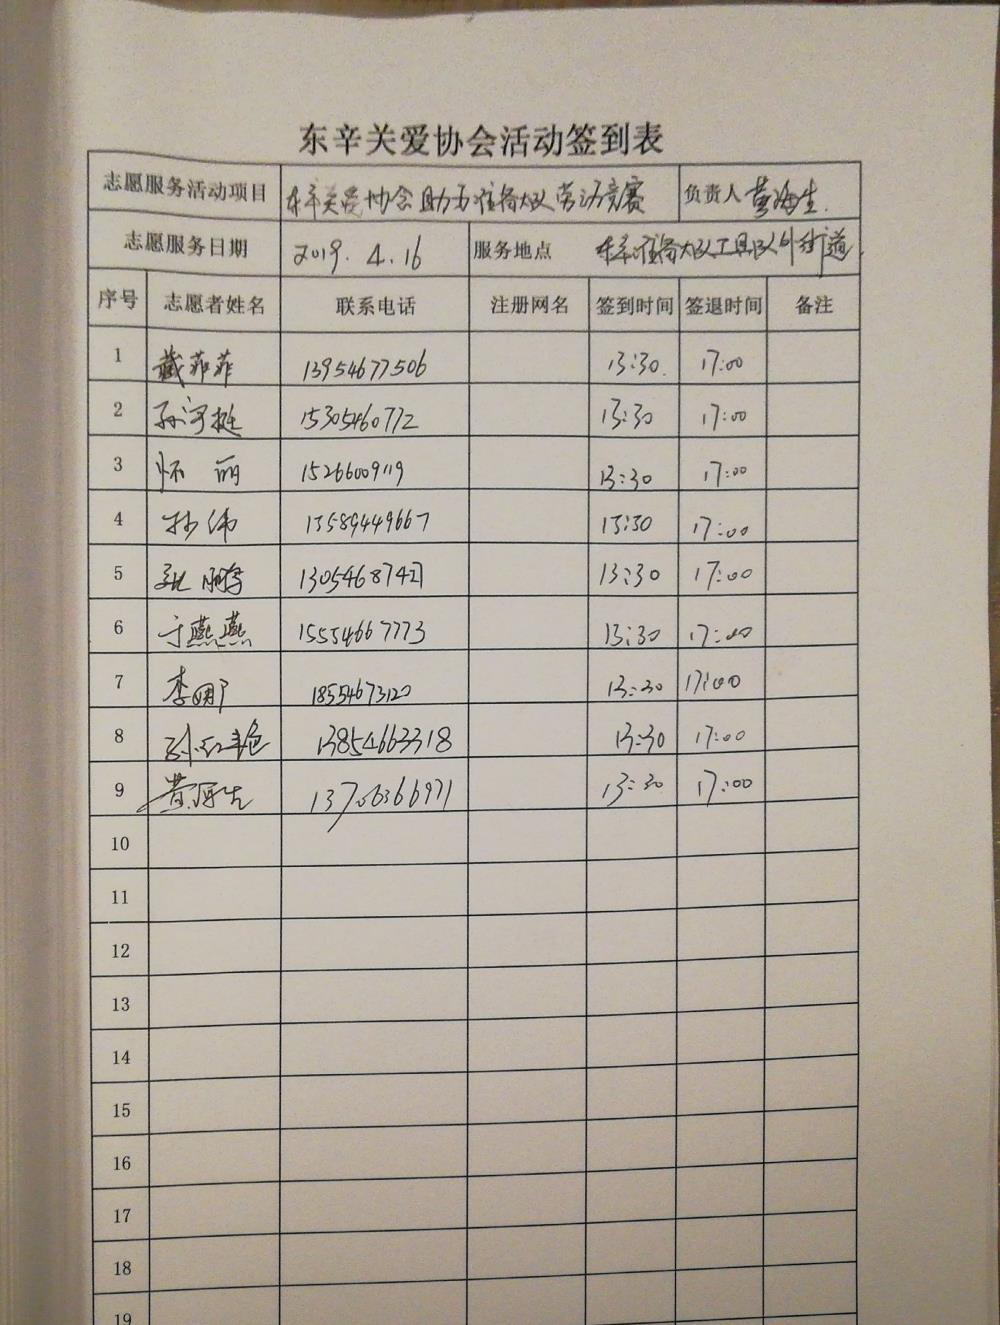 东辛关爱协会活动签到表
志愿服务活动项目 东辛关爱协会助力准备大队劳动竞赛 负责人 黄海生
志愿服务日期 2019.4.16 服务地点 东辛准备大队工具队外街道
序号 志愿者姓名 联系电话 注册网名 签到时间 签退时间 备注
1 臧菲菲 13954677506 13:30 17:00
2 15305460772 13:30 17:00
3 怀丽 15266009119 13:30 17:00
4 13589449667 13:30 17:00
5 13054687421 13:30 17:00
6 于燕燕 15554667773 13:30 17:00
7 李娜 18554673120 13:30 17:00
8 13854663318 13:30 17:00
9 黄海生 13706366971 13:30 17:00
10
11
12
13
14
15
16
17
18
19